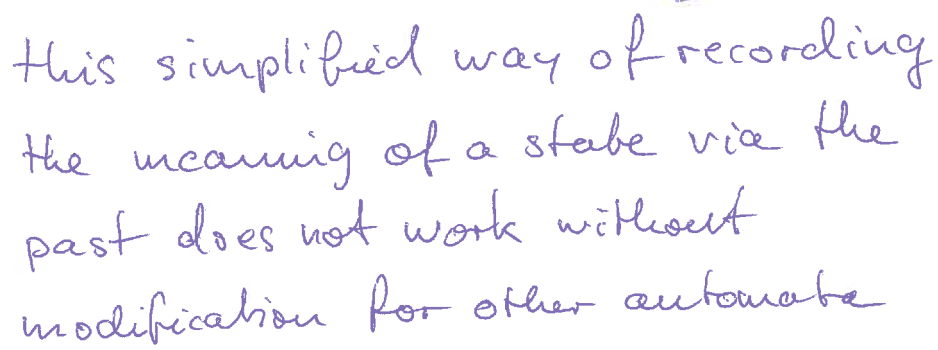 this simplified way of recording
the meaning of a state via the
past does not work without
modification for other automata